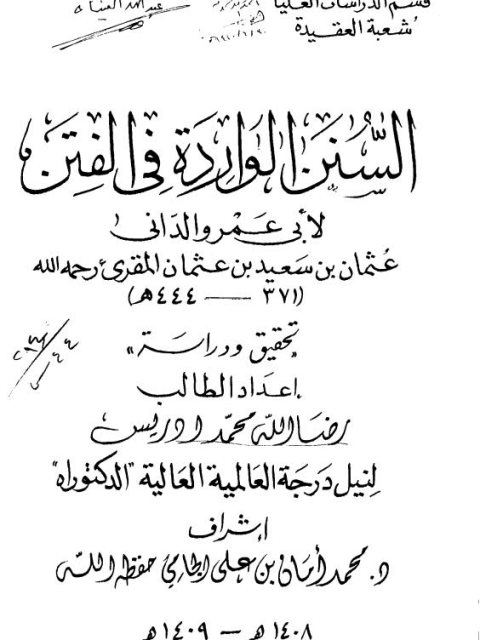 قسم الدراسات العليا
شعبة العقيدة
السُّنَن الوَارِدَة فِي الفِتَن
لأبي عَمْرو الدَّاني
عُثمان بن سَعيد بن عثمان المقرئ رحمه الله
(٣٧١ — ٤٤٤هـ)
"تحقيق ودراسَة"
إعداد الطالب
رضاء الله محمّد ادريس
لِنيل دَرجَة العَالمية العَالية "الدكتوراه"
إشراف
د. محمد أمان بن على الجامي حفظه الله
١٤٠٨ هـ — ١٤٠٩ هـ